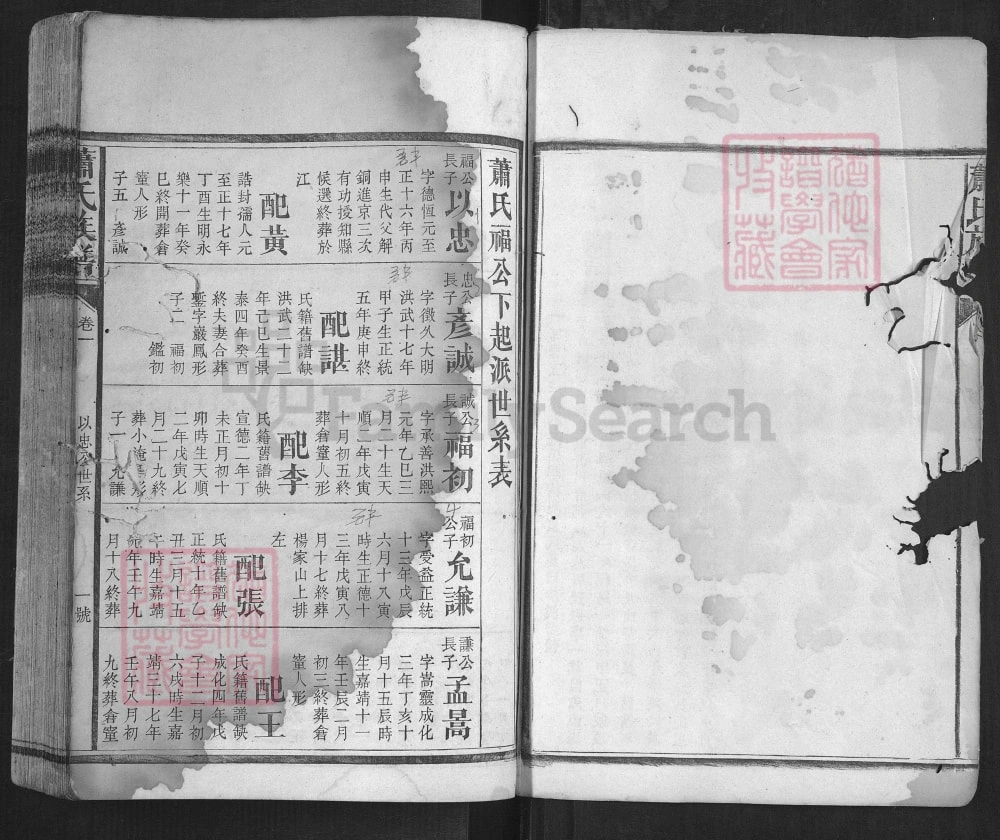 蕭氏福公下起派世系表
福公
長子
以忠
字德恆元至
正十六年丙
申生代父解
銅進京三次
有功授知縣
候選終葬於
江
配黃
誥封孺人元
至正十七年
丁酉生明永
樂十一年癸
巳終開葬倉
篁人形
子五 彥誠
忠公
長子
彥誠
字徵久大明
洪武十七年
甲子生正統
五年庚申終
配諶
氏籍舊譜缺
洪武二十二
年己巳生景
泰四年癸酉
終夫妻合葬
鏨字巖鳳形
子二 福初
鑑初
誠公
長子
福初
字承善洪熙
元年乙巳三
月二十生天
順二年戊寅
十月初五終
葬倉篁人形
配李
氏籍舊譜缺
宣德二年丁
未正月初十
卯時生天順
二年戊寅七
月二十九終
葬小淹 形
子一 允謙
福初
公子
允謙
字受益正統
十三年戊辰
六月十八寅
時生正德十
三年戊寅八
月十七終葬
楊家山上排
左
配張
氏籍舊譜缺
正統十年乙
丑三月十五
午時生嘉靖
元年壬午九
月十八終葬
謙公
長子
孟暠
字嵩靈成化
三年丁亥十
月十五辰時
生嘉靖十一
年壬辰二月
初三終葬倉
篁人形
配王
氏籍舊譜缺
成化四年戊
子十二月初
六戌時生嘉
靖三十七年
壬午八月初
九終葬倉篁
蕭氏族譜
卷一
以忠公世系
一號
FamilySearch